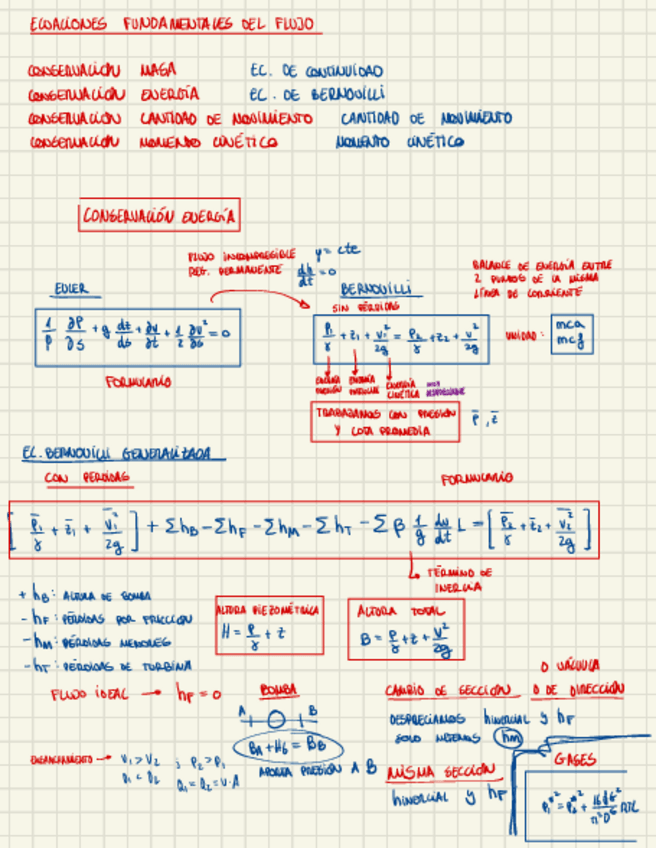 ECUACIONES FUNDAMENTALES DEL FLUJO
CONSERVACIÓN MASA EC. DE CONTINUIDAD
CONSERVACIÓN ENERGÍA EC. DE BERNOUILLI
CONSERVACIÓN CANTIDAD DE MOVIMIENTO CANTIDAD DE MOVIMIENTO
CONSERVACIÓN MOMENTO CINÉTICO MOMENTO CINÉTICO
CONSERVACIÓN ENERGÍA
FLUJO INCOMPRESIBLE γ = cte
REG. PERMANENTE dh/dt = 0
BALANCE DE ENERGÍA ENTRE
2 PUNTOS DE LA MISMA
LÍNEA DE CORRIENTE
EULER
BERNOUILLI
SIN PÉRDIDAS
1/ρ ∂P/∂s + g dz/ds + ∂v/∂t + 1/2 ∂v²/∂s = 0
P₁/γ + z₁ + v₁²/2g = P₂/γ + z₂ + v²/2g
UNIDAD: mca
mcf
FORMULARIO
ENERGÍA PRESIÓN
ENERGÍA
ENERGÍA CINÉTICA
TRABAJAMOS CON PRESIÓN
Y COTA PROMEDIA
P̄, z̄
EC. BERNOUILLI GENERALIZADA
CON PÉRDIDAS
FORMULARIO
[P̄₁/γ + z̄₁ + v̄₁²/2g] + Σh_B − Σh_F − Σh_M − Σh_T − Σ β 1/g dv/dt L = [P̄₂/γ + z̄₂ + v̄₂²/2g]
TÉRMINO DE
INERCIA
+ h_B: ALTURA DE BOMBA
- h_F: PÉRDIDAS POR FRICCIÓN
- h_M: PÉRDIDAS MENORES
- h_T: PÉRDIDAS DE TURBINA
ALTURA PIEZOMÉTRICA
H = P/γ + z
ALTURA TOTAL
B = P/γ + z + v²/2g
FLUJO IDEAL → h_F = 0
BOMBA
A B
B_A + H_B = B_B
APORTA PRESIÓN A B
ENSANCHAMIENTO → V₁ > V₂ ; P₂ > P₁
D₁ < D₂ Q₁ = Q₂ = V·A
O VÁLVULA
CAMBIO DE SECCIÓN O DE DIRECCIÓN
DESPRECIAMOS hinercial y h_F
SOLO METEMOS h_M
MISMA SECCIÓN
hinercial y h_F
GASES